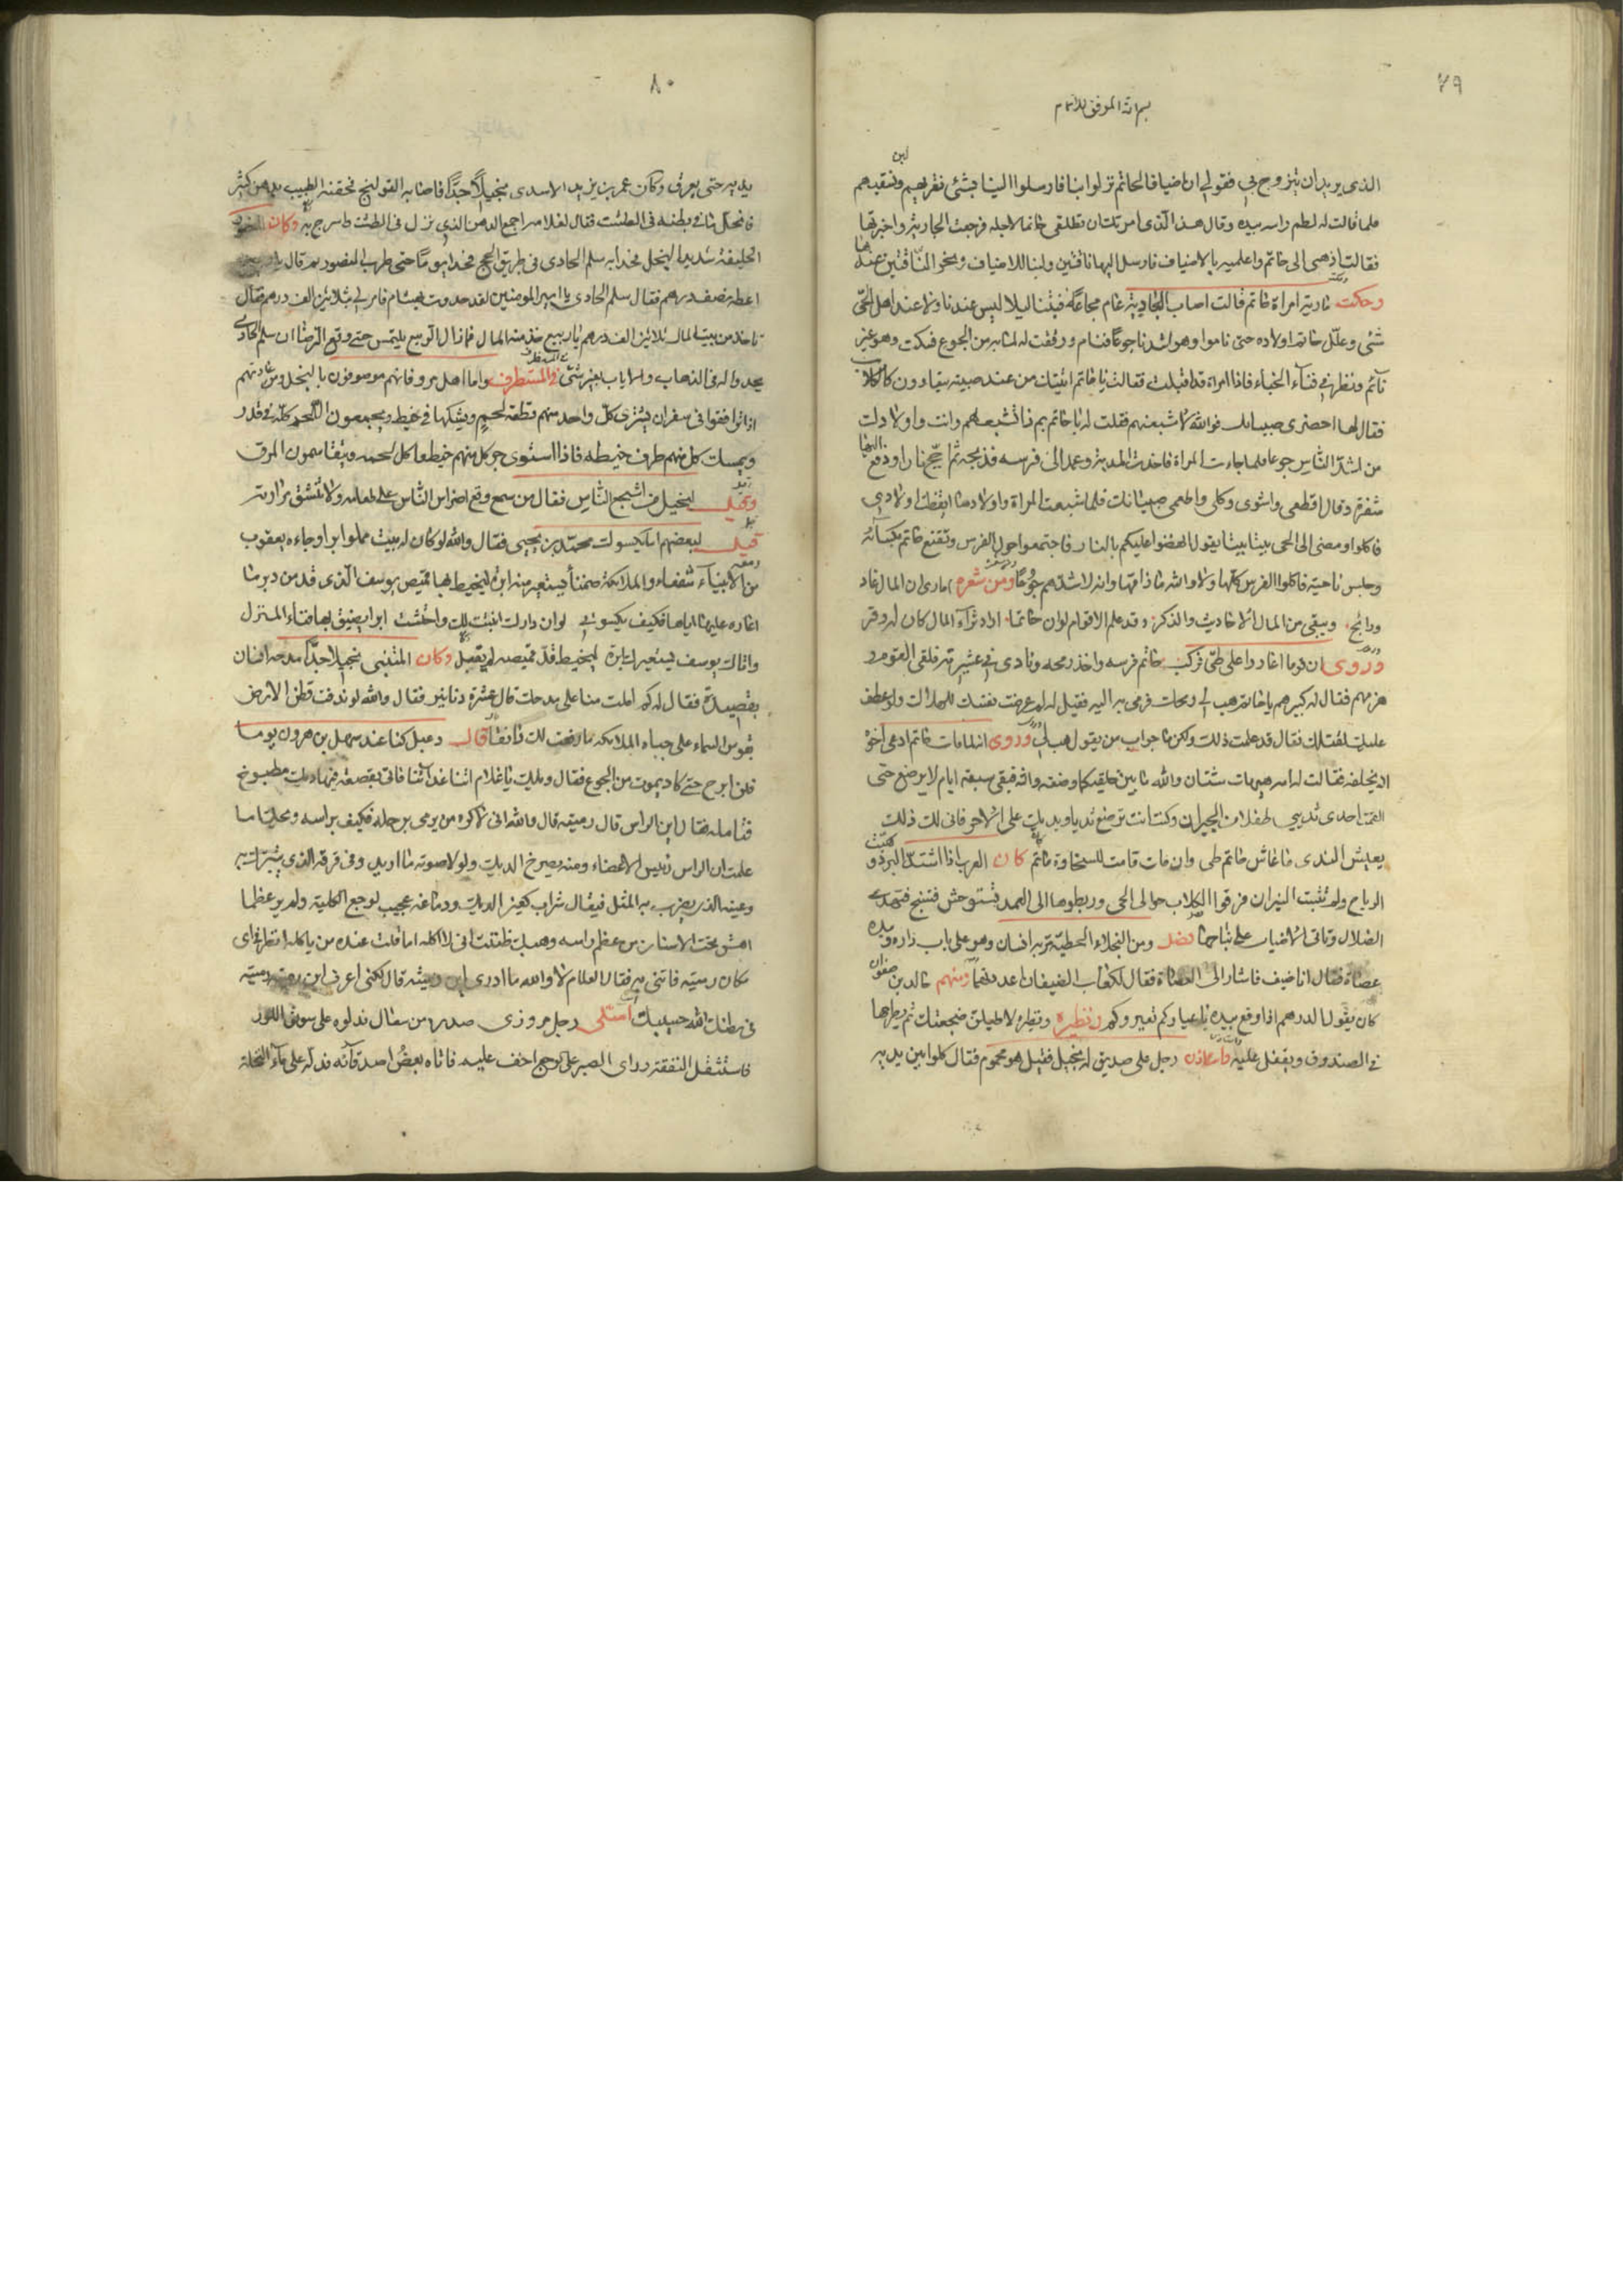 ٧٩
بسم الله الموفق للاتمام
الذي يريد ان يتزوج بي فقولي ان اضيافا لحاتم نزلوا بنا فارسلوا الينا بشئ نقريهم ونسقيهم لبن
فلما قالت له لطم راسه بيده وقال هذا الذي امرتك ان تطلقي حاتما لاجله فرجعت الجارية واخبرتها
فقالت اذهبي الى حاتم واعلميه بالاضياف فارسل اليها ناقتين ولبنا للاضياف ونحر الناقتين عندها
وحكت مارية امراة حاتم قالت اصاب البادية عام مجاعة فبتنا ليلا ليس عندنا ولا عند اهل الحي
شئ وعلل حاتم اولاده حتى ناموا وهو اشدنا جوعا فنام ورققت له لما به من الجوع فسكت وهو غير
نائم ونظر في فناء الخباء فاذا امراة قد اقبلت فقالت يا حاتم اتيتك من عند صبية يتعاوون كالكلاب
فقال لها احضري صبيانك فوالله لاشبعنهم فقلت له يا حاتم بم ذا تشبعهم وانت واولادك
من اشد الناس جوعا فلما جاءت المراة فاخذ المدية وعمد الى فرسه فذبحه ثم اجج نارا ودفع اليها
شفرة وقال اقطعي واشوي وكلي واطعمي صبيانك فلما شبعت المراة واولادها ايقظت اولادي
فاكلوا ومضى الى الحي بيتا بيتا يقول انهضوا عليكم بالنار فاجتمعوا حول الفرس وتقنع حاتم بكسائه
وجلس ناحية فاكلوا الفرس كلها ولا والله ما ذاقها وانه لاشدهم جوعا ومن شعره اماوي ان المال غاد
ورائح ويبقى من المال الاحاديث والذكر وقد علم الاقوام لو ان حاتما اراد ثراء المال كان له وفر
وروى ان قوما اغاروا على طي فركب حاتم فرسه واخذ رمحه ونادى في عشيرته فلقي القوم و
هزمهم فقال له كبيرهم يا حاتم هب لي رمحك فرمى به اليه فقيل له لم عرضت نفسك للهلاك ولو عطف
عليك لقتلك فقال قد علمت ذلك ولكن ما جواب من يقول هب لي وروى انه لما مات حاتم ادعى اخوه
انه يخلفه فقالت له امه هيهات شتان والله ما بين خلقيكما وضعته والله فبقي سبعة ايام لا يرضع حتى
القمت احدى ثديي طفلا من الجيران وكنت انت ترضع ثديا ويدك على الاخر فاني لك ذلك
يعيش الندى ما عاش حاتم طي وان مات قامت للسخاوة ماتم كان العرب اذا اشتد البرد وهبت
الرياح ولم تثبت النيران فرقوا الكلاب حوالي الحي وربطوها الى العمد فتستوحش فتنبح فتهدي
الضلال وتاتي الاضياف على نباحها فصل ومن البخلاء الحطيئة مر به انسان وهو على باب داره وبيده
عصاة فقال انا ضيف فاشار الى العصاة فقال لكعاب الضيفان اعددتها ومنهم خالد بن صفوان
كان يقول للدرهم اذا وقع بيده يا عيار كم تعير وكم تطير ونظير لاطيلن ضجعتك ثم يطرحها
في الصندوق ويقفل عليه واستاذن رجل على صديق له بخيل فقيل هو محموم فقال كلوا بين يديه
٨٠
يديه حتى يعرق وكان عمر بن يزيد الاسدي بخيلا جدا فاصابه القولنج فحقنه الطبيب بدهن كثير
فانحل ما في بطنه في الطشت فقال لغلامه اجمع الدهن الذي نزل في الطشت واسرج به وكان المنصور
الخليفة شديد البخل فحدا به سلم الحادي في طريق الحج فحدا يوما حتى طرب المنصور ثم قال يا ربيع
اعطه نصف درهم فقال سلم الحادي يا امير المومنين لقد حدوت بهشام فامر لي بثلاثين الف درهم فقال
تاخذ من بيت المال ثلاثين الف درهم يا ربيع خذ منه المال فما زال الربيع يلتمس حتى وقع الرضا ان سلم الحادي
يحدو له في الذهاب والاياب بغير شئ في المستطرف واما اهل مرو فانهم موصوفون بالبخل ومن عادتهم
اذا ترافقوا في سفر ان يشتري كل واحد منهم قطعة لحم ويشكها في خيط ويجمعون اللحم كله في قدر
ويمسك كل منهم طرف خيطه فاذا استوى جر كل منهم خيطه واكل لحمه ويتقاسمون المرق
وقيل لبخيل من اشجع الناس فقال من سمع وقع اضراس الناس على طعامه ولا تنشق مرارته
قيل لبعضهم اما يكسوك محمد بن يحيى فقال والله لو كان له بيت مملوا ابرا وجاءه يعقوب
من الانبياء شفعاء والملائكة ضمناء يستعير منه ابرة ليخيط بها قميص يوسف الذي قد من دبر ما
اعاره عليها اياها فكيف يكسوني لو ان دارك انبتت لك واحتشت ابرا يضيق بها فناء المنزل
واتاك يوسف يستعيرك ابرة ليخيط قد قميصه لم يفعل وكان المتنبي بخيلا جدا مدحه انسان
بقصيدة فقال له كم املت منا على مدحك قال عشرة دنانير فقال والله لو ندفت قطن الارض
بقوس السماء على جباه الملائكة ما دفعت لك دانقا قال دعبل كنا عند سهل بن هرون يوما
فلن نبرح حتى كاد يموت من الجوع فقال ويلك يا غلام اتنا غدائنا فاتى بقصعة فيها ديك مطبوخ
فتامله فقال اين الراس قال رميته قال والله اني لاكره من يرمي برجله فكيف براسه ويحك اما
علمت ان الراس رئيس الاعضاء ومنه يصرخ الديك ولولا صوته ما اريد وفي فرقه الذي يتبرك به
وعينه الذي يضرب به المثل فيقال شراب كعين الديك ودماغه عجيب لوجع الكلية ولم ير عظما
اهش تحت الاسنان من عظم راسه وهبك ظننت اني لا اكله اما قلت عنده من ياكله انظر في اي
مكان رميته فاتني به فقال الغلام لا والله ما ادري اين رميته قال لكني اعرف اين رميته رميته
في بطنك الله حسيبك اشتكى رجل مروزي صدره من سعال فدلوه على سويق اللوز
فاستثقل النفقة وراى الصبر على الوجع اخف عليه فاتاه بعض اصدقائه فدله على ماء النخلة